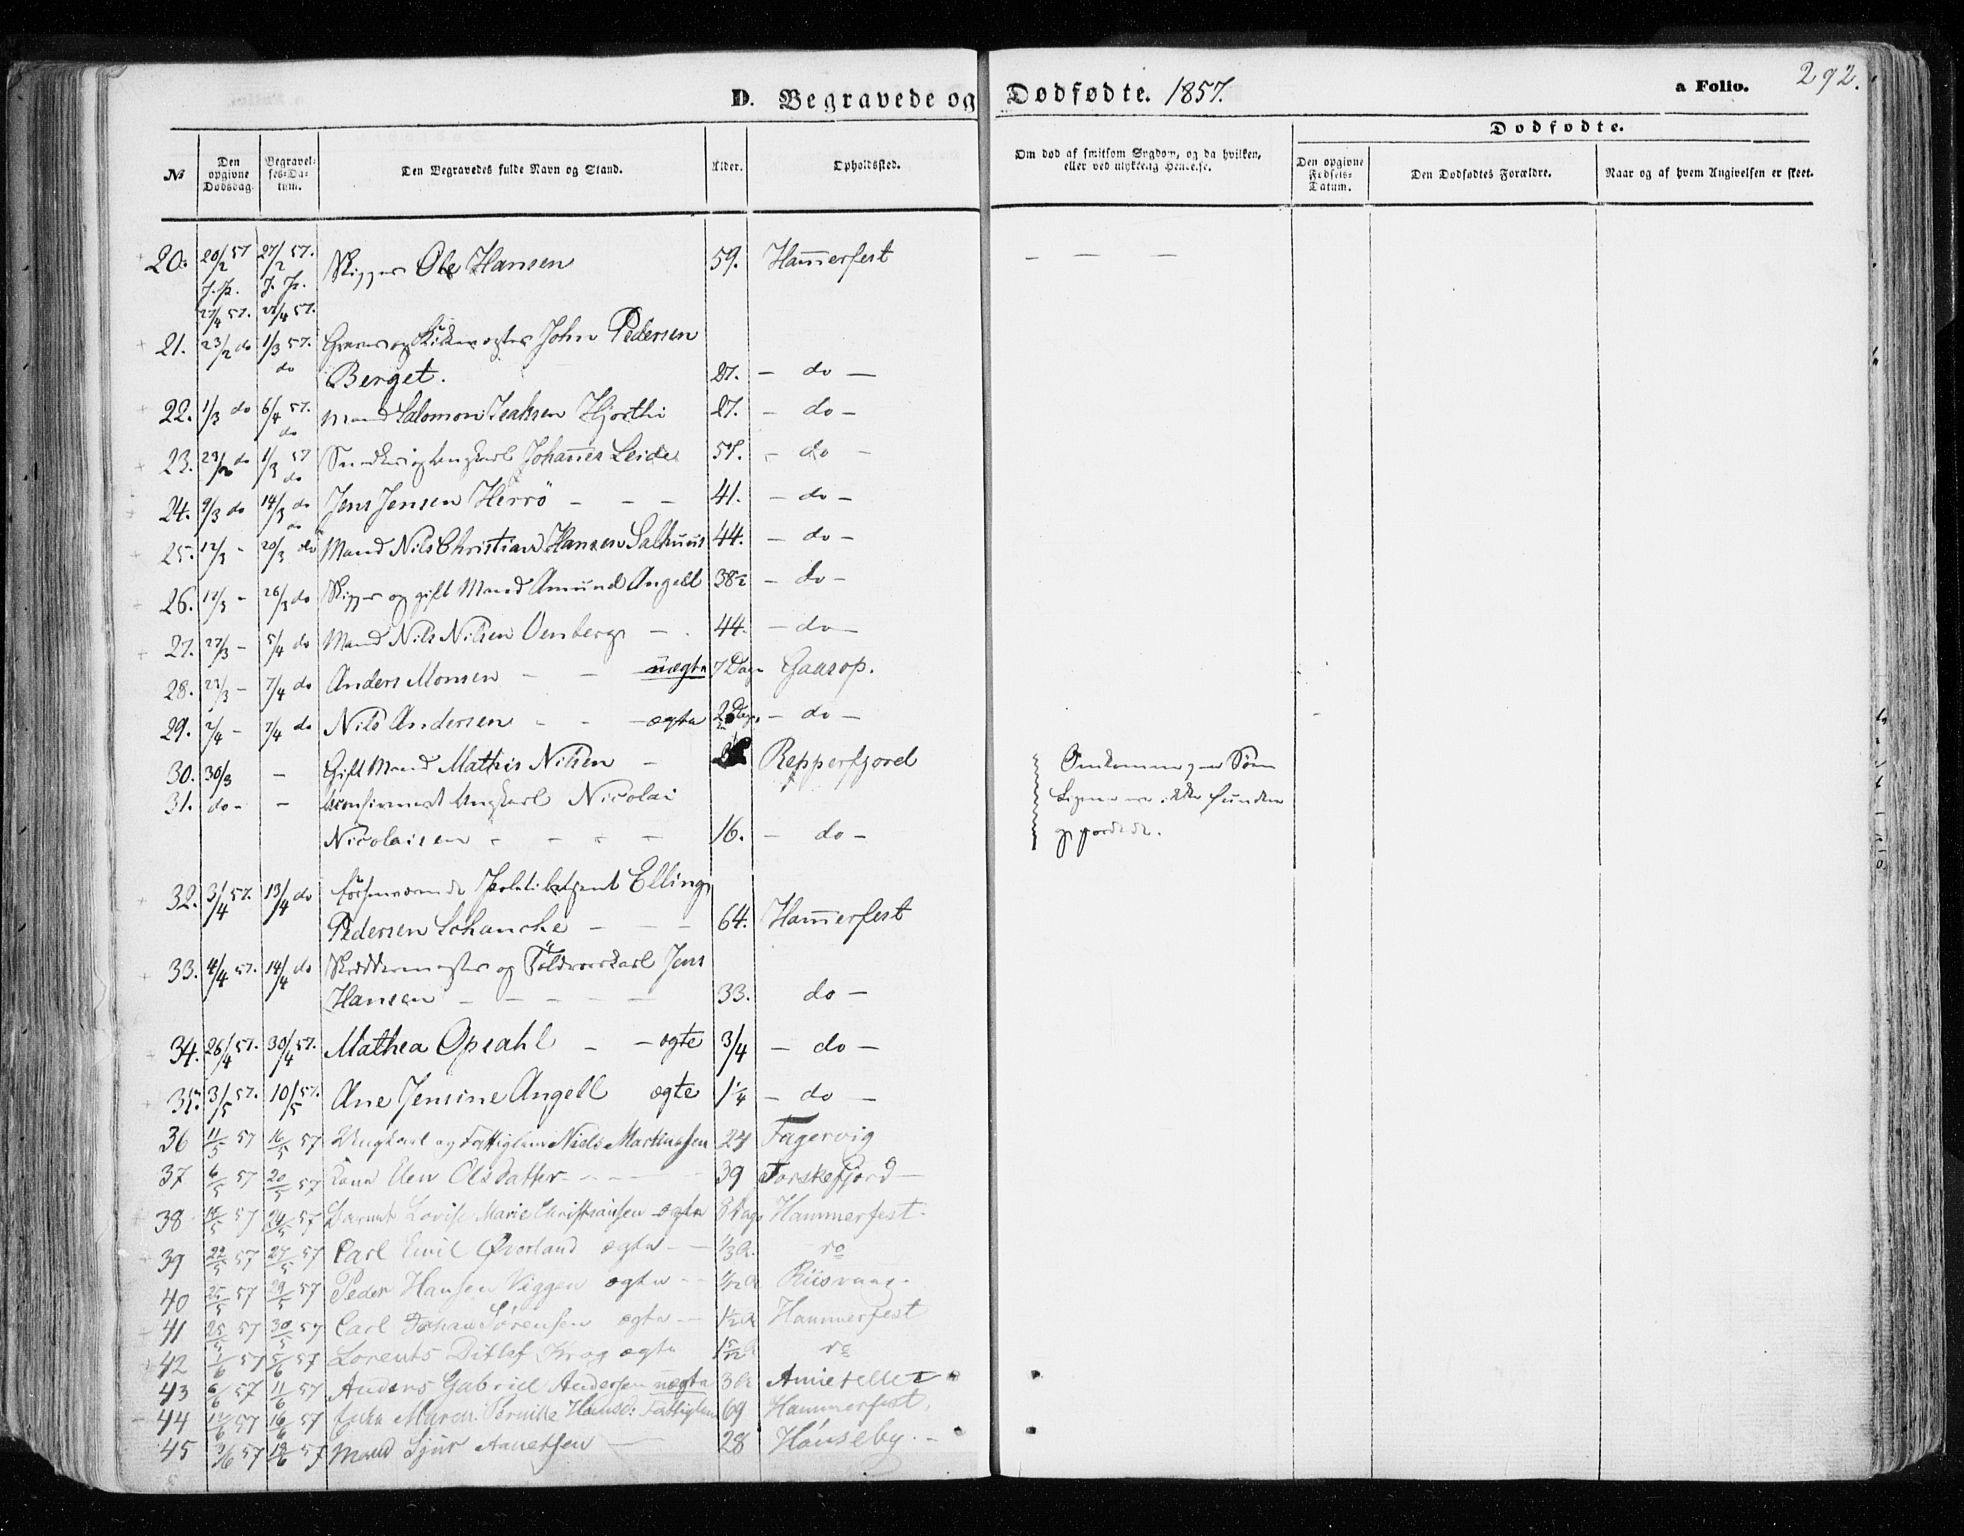 292.
D. Begravede og Dødfødte. 1857. a Folio.
Dødfødte.
No Den opgivne Dødsdag. Begravelses-Datum. Den Begravedes fulde Navn og Stand. Alder. Opholdssted. Om død af smitsom Sygdom, og da hvilken, eller ved ulykkelig Hendelse. Den opgivne Fødsels-Datum. Den Dødfødtes Forældre. Naar og af hvem Angivelsen er skeet.
20. 20/2 57 27/2 57. Skipper Ole Hansen 59. Hammerfest — — —
J. P. J. P.
27/4 57. 27/4 57.
21. 23/2 do 1/3 57. John Pedersen
do Berget. 27. — do —
22. 1/3 do 6/4 57. Mand Salomon Isaksen Hjorthi 27. — do —
do
23. 23/2 do 1/3 57 Johannes Leide 57. — do —
do
24. 9/3 do 14/3 do Jens Jensen Herrö — — — 41. — do —
do
25. 12/3 — 20/3 do Mand Nils Christian Hansen Salhuus 44. — do —
26. 12/3 — 26/3 do Skipper og gift Mand Amund Angell 38½ — do —
27. 27/3 — 5/4 do Mand Nils Nilsen Venberg — 44. — do —
28. 22/3 — 7/4 do Anders Monsen — — uægte 7 Dage Gaasop.
29. 2/4 — 7/4 do Nils Andersen — — ægte 2 Dage — do —
30. 30/3 — Gift Mand Mathis Nilsen — Repperfjord Omkomne paa Søen
31. do — — Konfirmeret Ungkarl Nicolai Ligene ere ikke fundne
Nicolaisen — — — — 16. — do — og jordede.
32. 3/4 57. 13/4 do forhenværende Politibetjent Elling
Pedersen Schanche — — — 64. Hammerfest
33. 4/4 57. 14/4 do Skreddermester og Jens
Hansen — — — — — 33. do —
34. 26/4 57. 30/4 57. Mathea Opdahl — — ægte 3/4 — do —
35. 3/5 57. 10/5 57. Ane Jensine Angell ægte 1¼ — do —
36 11/5 57 16/5 57 Ungkarl og Fattiglem Niels Martinussen 24 Fagervig
37 6/5 57 20/5 57 Kone Elen Olsdatter — — — — 39 Torskefjord —
38 18/5 57 24/5 57 Lovise Marie Christiansen ægte 8 Dage Hammerfest.
39 22/5 57 27/5 57 Carl Emil Øverland ægte — — 1/3 A. do
40 25/5 57 29/5 57 Peder Hansen Viggen ægte — — 1/12 A Riisvaag.
41 25/5 57 30/5 57 Carl Johan Sørensen ægte — — 1/12 A Hammerfest
42 1/6 57 5/6 57 Lorents Ditlef Krog ægte 1 5/12 do
43 6/6 57 11/6 57 Anders Gabriel Andersen uægte 3 A
44 12/6 57 16/6 57 Enke Maren Pernille Hansd: Fattiglem 69 Hammerfest,
45 57 19/6 57 Mand Sjur Aanetsen — 28 Hønseby. —